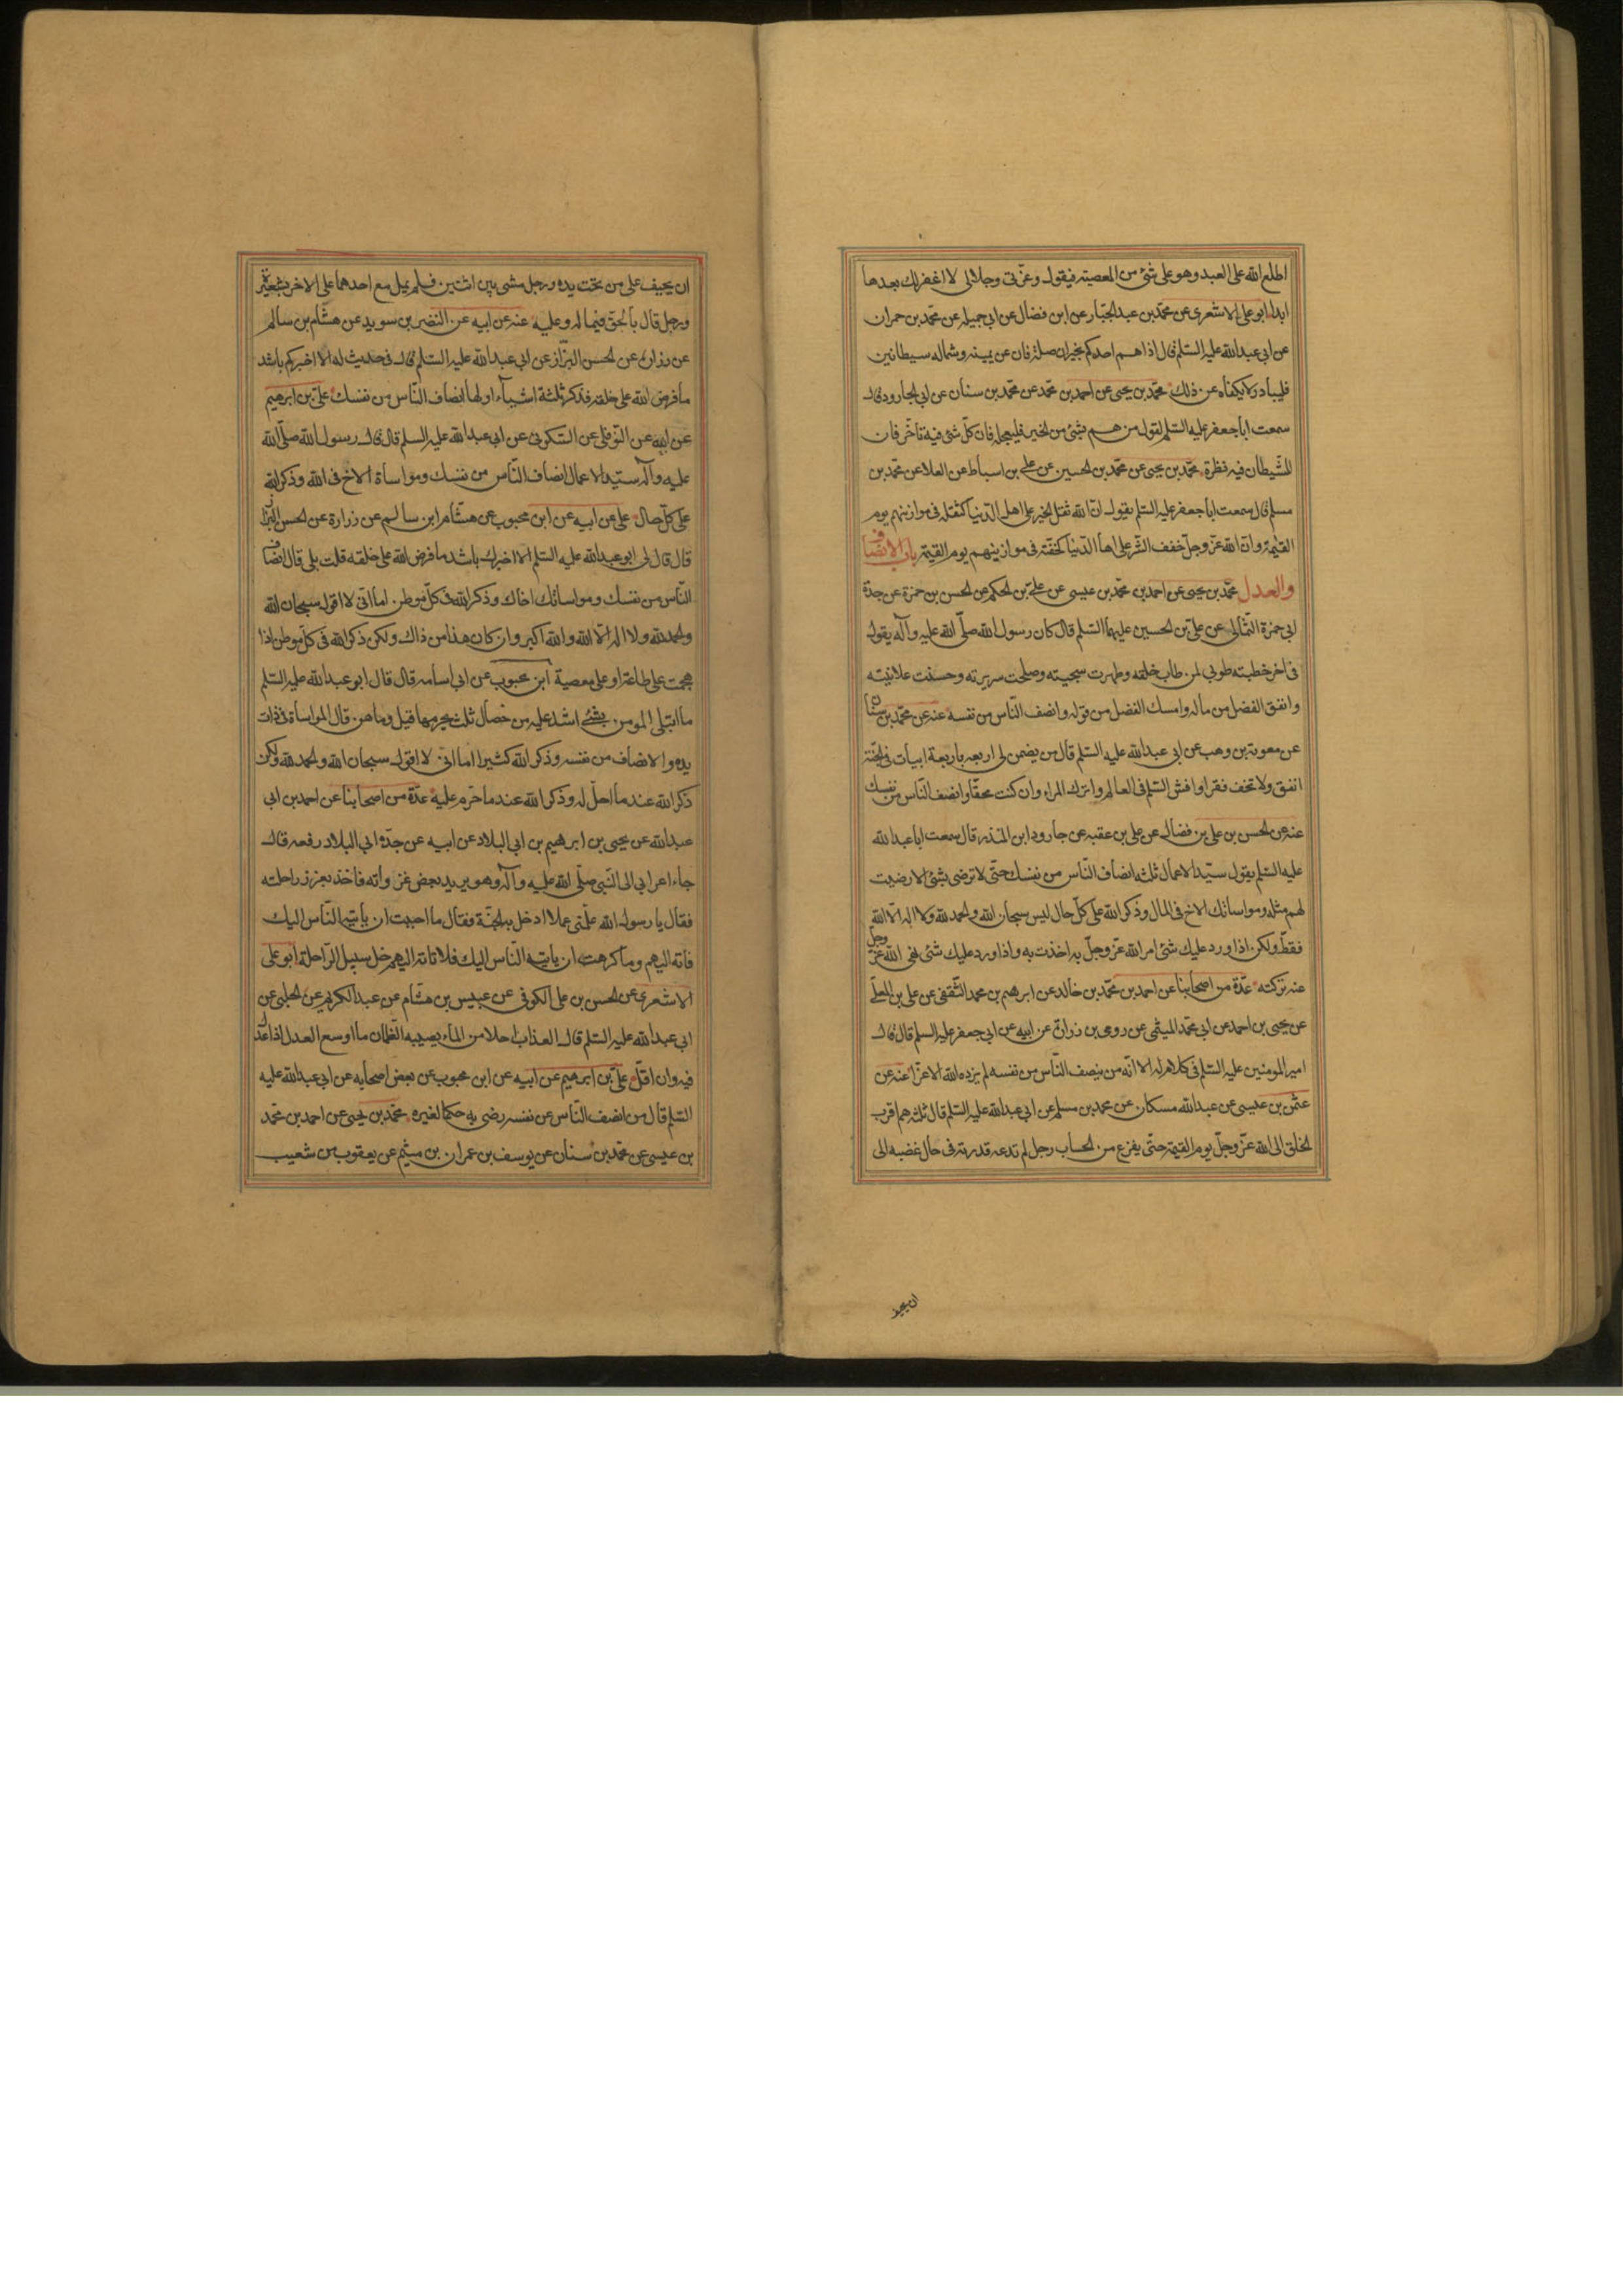 اطلع الله على العبد وهو على شئ من المعصية فيقول وعزتى وجلالى لا اغفر لك بعدها
ابدا ابو على الاشعرى عن محمد بن عبد الجبار عن ابن فضال عن ابى جميله عن محمد بن حمران
عن ابى عبد الله عليه السلم قال اذا هم احدكم بخير او صلة فان عن يمينه وشماله شيطانين
فليبادر لا يكفاه عن ذلك محمد بن يحيى عن احمد بن محمد عن محمد بن سنان عن ابى الجارود قال
سمعت ابا جعفر عليه السلم يقول من هم بشئ من الخير فليعجله فان كل شئ فيه تاخر فان
للشيطان فيه نظرة محمد بن يحيى عن محمد بن الحسين عن على بن اسباط عن العلا عن محمد بن
مسلم قال سمعت ابا جعفر عليه السلم يقول ان الله ثقل الخير على اهل الدنيا كثقله فى موازينهم يوم
القيمة وان الله عز وجل خفف الشر على اهل الدنيا كخفته فى موازينهم يوم القيمة باب الانصاف
والعدل محمد بن يحيى عن احمد بن محمد بن عيسى عن على بن الحكم عن الحسن بن حمزة عن جده
ابى حمزة الثمالى عن على بن الحسين عليهما السلم قال كان رسول الله صلى الله عليه وآله يقول
فى اخر خطبته طوبى لمن طاب خلقه وطهرت سجيته وصلحت سريرته وحسنت علانيته
وانفق الفضل من ماله وامسك الفضل من قوله وانصف الناس من نفسه عنه عن محمد بن سنان
عن معوية بن وهب عن ابى عبد الله عليه السلم قال من يضمن لى اربعه باربعة ابيات فى الجنة
انفق ولا تخف فقرا وافش السلم فى العالم واترك المراء وان كنت محقا وانصف الناس من نفسك
عنه عن الحسن بن على بن فضال عن على بن عقبه عن جارود ابن المنذر قال سمعت ابا عبد الله
عليه السلم يقول سيد الاعمال ثلثه انصاف الناس من نفسك حتى لا ترضى بشئ الا رضيت
لهم مثله ومواساتك الاخ فى المال وذكر الله على كل حال ليس سبحان الله والحمد لله ولا اله الا الله
فقط ولكن اذا ورد عليك شئ امر الله عز وجل به اخذت به واذا ورد عليك شئ نهى الله عز وجل
عنه تركته عدة من اصحابنا عن احمد بن محمد بن خالد عن ابرهيم بن محمد الثقفى عن على بن المعلى
عن يحيى بن احمد عن ابى محمد الميثمى عن رومى بن زرارة عن ابيه عن ابى جعفر عليه السلم قال قال
امير المومنين عليه السلم فى كلام له الا انه من ينصف الناس من نفسه لم يزده الله الا عزا عنه عن
عثمن بن عيسى عن عبد الله مسكان عن محمد بن مسلم عن ابى عبد الله عليه السلم قال ثلثه هم اقرب
الخلق الى الله عز وجل يوم القيمة حتى يفرغ من الحساب رجل لم تدعه قدرته فى حال غضبه الى
ان يحيف
ان يحيف على من تحت يده ورجل مشى بين اثنين فلم يمل مع احدهما على الاخر بشعيرة
ورجل قال بالحق فيما له وعليه عنه عن ابيه عن النضر بن سويد عن هشام بن سالم
عن زرارة عن الحسن البزاز عن ابى عبد الله عليه السلم قال فى حديث له الا اخبركم باشد
ما فرض الله على خلقه فذكر ثلثة اشياء اولها انصاف الناس من نفسك على بن ابرهيم
عن ابيه عن النوفلى عن السكونى عن ابى عبد الله عليه السلم قال قال رسول الله صلى الله
عليه وآله سيد الاعمال انصاف الناس من نفسك ومواساة الاخ فى الله وذكر الله
على كل حال على عن ابيه عن ابن محبوب عن هشام ابن سالم عن زرارة عن الحسن البزاز
قال قال لى ابو عبد الله عليه السلم الا اخبرك باشد ما فرض الله على خلقه قلت بلى قال انصاف
الناس من نفسك ومواساتك اخاك وذكر الله فى كل موطن اما انى لا اقول سبحان الله
والحمد لله ولا اله الا الله والله اكبر وان كان هذا من ذاك ولكن ذكر الله فى كل موطن اذا
هجمت على طاعة او على معصية ابن محبوب عن ابى اسامه قال قال ابو عبد الله عليه السلم
ما ابتلى المومن بشئ اشد عليه من خصال ثلث يحرمها قيل وما هن قال المواساة فى ذات
يده والانصاف من نفسه وذكر الله كثيرا اما انى لا اقول سبحان الله والحمد لله ولكن
ذكر الله عند ما احل له وذكر الله عند ما حرم عليه عدة من اصحابنا عن احمد بن ابى
عبد الله عن يحيى بن ابرهيم بن ابى البلاد عن ابيه عن جده ابى البلاد رفعه قال
جاء اعرابى الى النبى صلى الله عليه وآله وهو يريد بعض غزواته فاخذ بغرز راحلته
فقال يا رسول الله علمنى عملا ادخل به الجنة فقال ما احببت ان ياتيه الناس اليك
فاته اليهم وما كرهت ان ياتيه الناس اليك فلا تاته اليهم خل سبيل الراحلة ابو على
الاشعرى عن الحسن بن على الكوفى عن عبيس بن هشام عن عبد الكريم عن الحلبى عن
ابى عبد الله عليه السلم قال العدل احلا من الماء يصيبه الظمان ما اوسع العدل اذا عدل
فيه وان اقل على بن ابرهيم عن ابيه عن ابن محبوب عن بعض اصحابه عن ابى عبد الله عليه
السلم قال من انصف الناس عن نفسه رضى به حكما لغيره محمد بن يحيى عن احمد بن محمد
بن عيسى عن محمد بن سنان عن يوسف بن عمران بن ميثم عن يعقوب بن شعيب